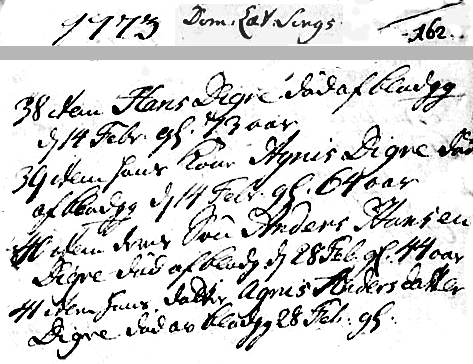 1773 Dom. Est. Sings. 162.
38 item Hans Digre død af blodgg
d 14 Febr. gl. 73 aar
39 item hans Kone Agnis Digre død
af blodgg d 14 Febr. gl. 64 aar
40 item deres Søn Anders Hansen
Digre død af blodg d 28 Feb. gl. 44 aar
41 item hans datter Agnis Anders datter
Digre død av blodgg 28 Feb. gl.